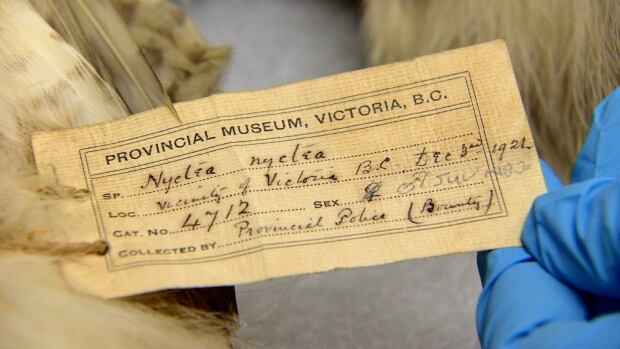 PROVINCIAL MUSEUM, VICTORIA, B.C.
SP. Nyctea nyctea
LOC. Vicinity of Victoria B.C. Dec 3rd 1921
CAT. No. 4712 SEX ♀ ♂
COLLECTED BY Provincial Police (Bounty)